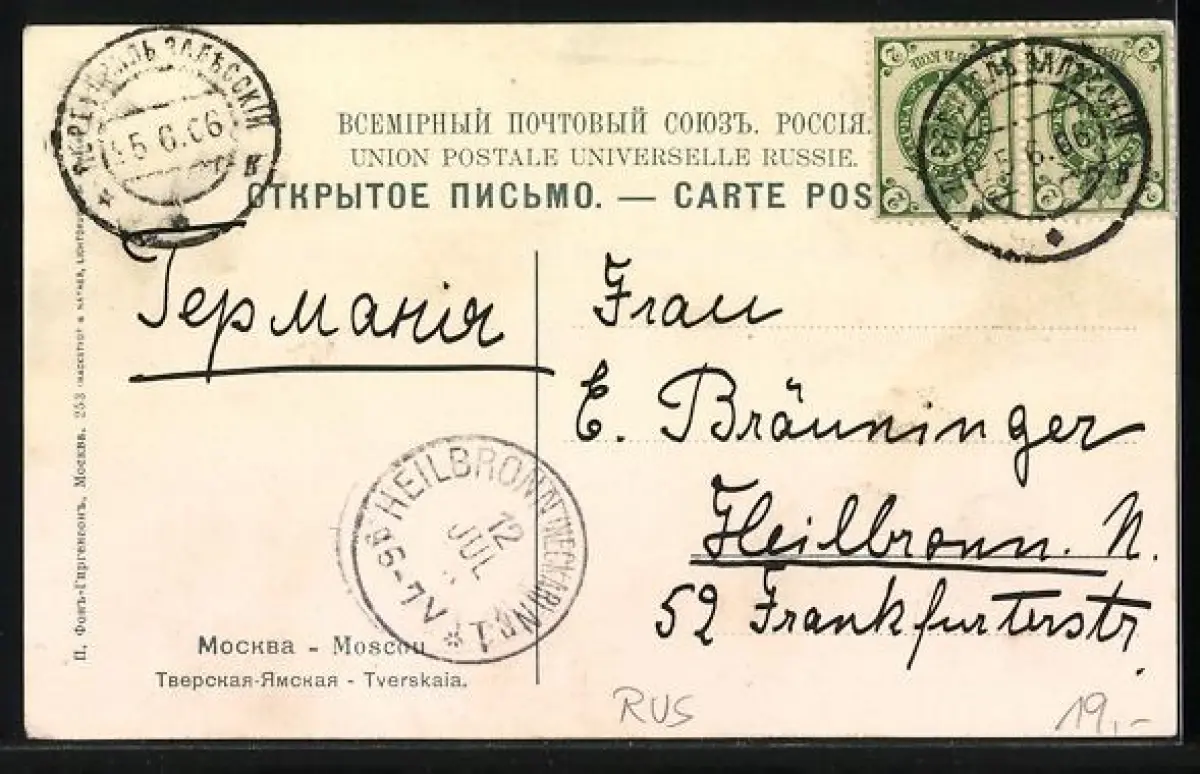 ПЕРЕЯСЛАВЛЬ ЗАЛѢССКІЙ
5.6.06
в
ВСЕМІРНЫЙ ПОЧТОВЫЙ СОЮЗЪ. РОССІЯ.
UNION POSTALE UNIVERSELLE RUSSIE.
ОТКРЫТОЕ ПИСЬМО. — CARTE POS
2 2
2 2
ЗАЛѢССКІЙ
в
Германія
Frau
E. Bräuninger
Heilbronn. N.
52 Frankfurterstr.
HEILBRONN (NECKAR) Nº1
12
JUL
6-7V
П. Фонъ-Гиргенсонъ, Москва. 253
Москва - Moscou
Тверская-Ямская - Tverskaia.
RUS
19,-